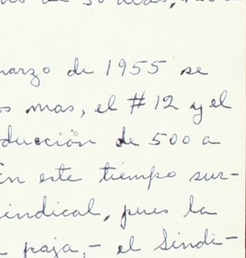 de 30 días,
marzo de 1955 se
os mas, el #12 y el
oducción de 500 a
En este tiempo sur-
indical, pues la
e paja, - el Sindi-